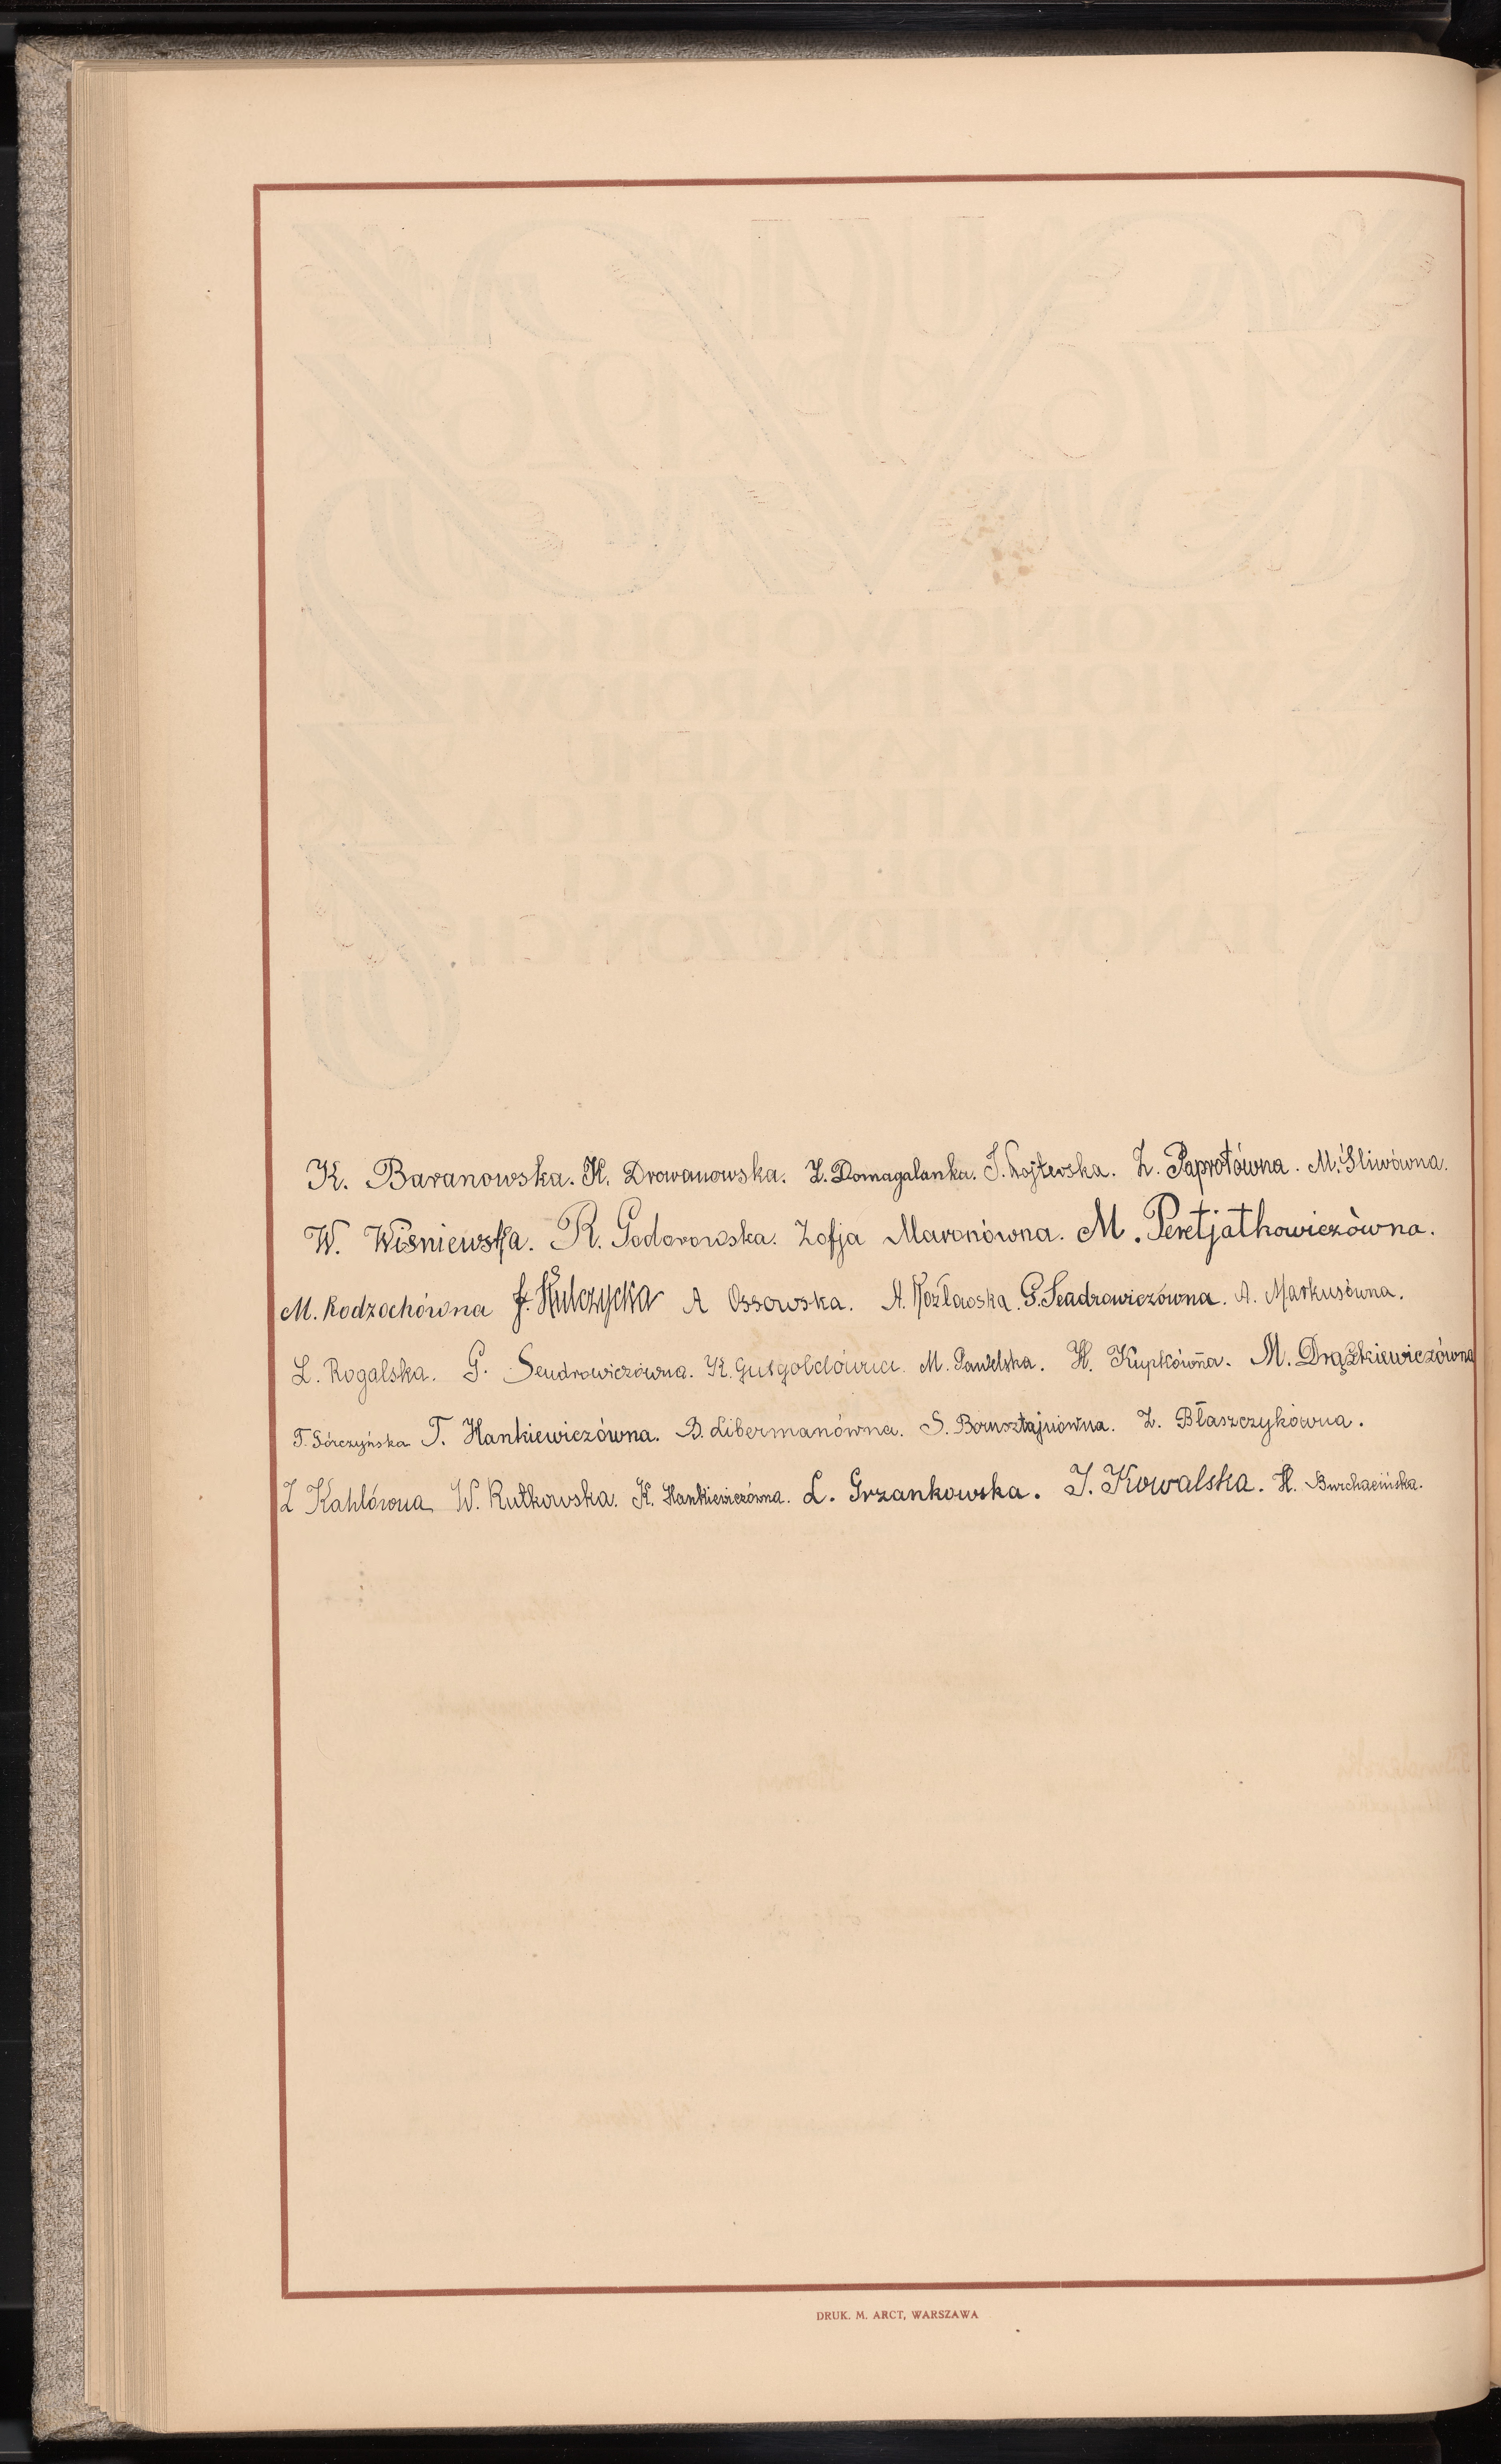 K. Baranowska. H. Drowanowska. Z. Domagalanka. S. Wojterska. Z. Paprotówna. M. Śliwówna.
W. Wiśniewska. R. Godorowska. Zofja Maronówna. M. Peretjatkowiczówna.
M. Rodzochówna J. Kulczycka A Ossowska. A. Kozławska. G. Seadrowiczówna. A. Markusówna.
L. Rogalska. G. Sendrowiczówna. K. Gutgoldówna. M. Pawelska. H. Kupkówna. M. Drążkiewiczówna
T. Górczyńska T. Hankiewiczówna. B. Libermanówna. S. Borusztajnówna. Z. Błaszczykówna.
Z Kahlówna W. Rutkowska. K. Hankiewiczówna. L. Grzankowska. J. Kowalska. H. Burchacińska.
DRUK. M. ARCT, WARSZAWA